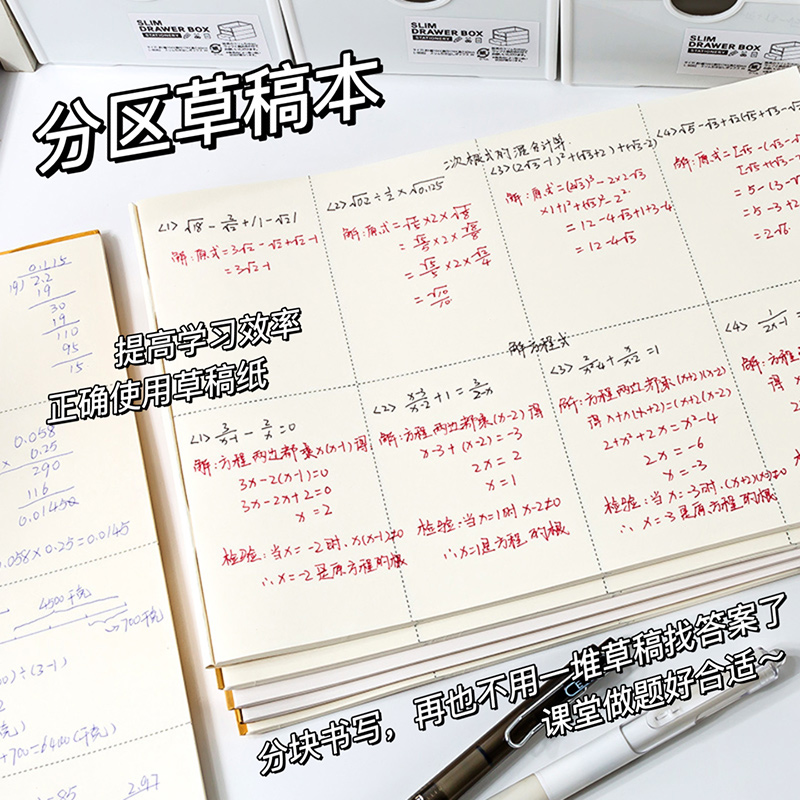 SLIM
DRAWER BOX
STATIONERY
SLIM
DRAWER BOX
STATIONERY
SLIM
DRAWER BOX
STATIONERY
分区草稿本
二次根式的混合计算
<1> √18 - 2/√2 + |1-√2|
解:原式=3√2-√2+√2-1
=3√2-1
<2> √02 ÷ 1/2 × √0.125
解:原式=√1/5×2×√1/8
=√5/5×2×√2/4
=√10/10
<3>(2√3-1)²+(√3+2)(√3-2)
解:原式=(2√3)²-2×2√3
×1+1²+(√3)²-2²
=12-4√3+1+3-4
=12-4√3
<4>√5-√3+√2(√5+√3-√
解:原式=[√5-(√3-√
=5-(3-
=5-3+2
=2√6
提高学习效率
正确使用草稿纸
解方程式
<1> 3/x-1 - 2/x =0
解:方程两边都乘x(x-1)得:
3x-2(x-1)=0
3x-2x+2=0
x=2
检验:当x=-2时,x(x-1)≠0
∴x=-2是原方程的根
<2> x-3/x-2 +1= 3/2-x
解:方程两边都乘(x-2)得
x-3+(x-2)=-3
2x=2
x=1
检验:当x=1时x-2≠0
∴x=1是方程的根
<3> 2/x²-4 + x/x-2 =1
解:方程两边都乘(x+2)(x-2)
得x+x(x+2)=(x+2)(x-2)
2+x²+2x=x²-4
2x=-6
x=-3
检验:当x=-3时,(x+2)(x-2)≠0
∴x=-3是原方程的根
<4> 1/2x-1 =
解:方程
得
0.115
19)2.2
19
30
19
110
95
15
0.058
× 0.25
290
116
0.01450
.058×0.25=0.0145
4500千克
700千克
)÷(3-1)
+700=6400(千克)
2.97
分块书写,再也不用一堆草稿找答案了
课堂做题好合适~